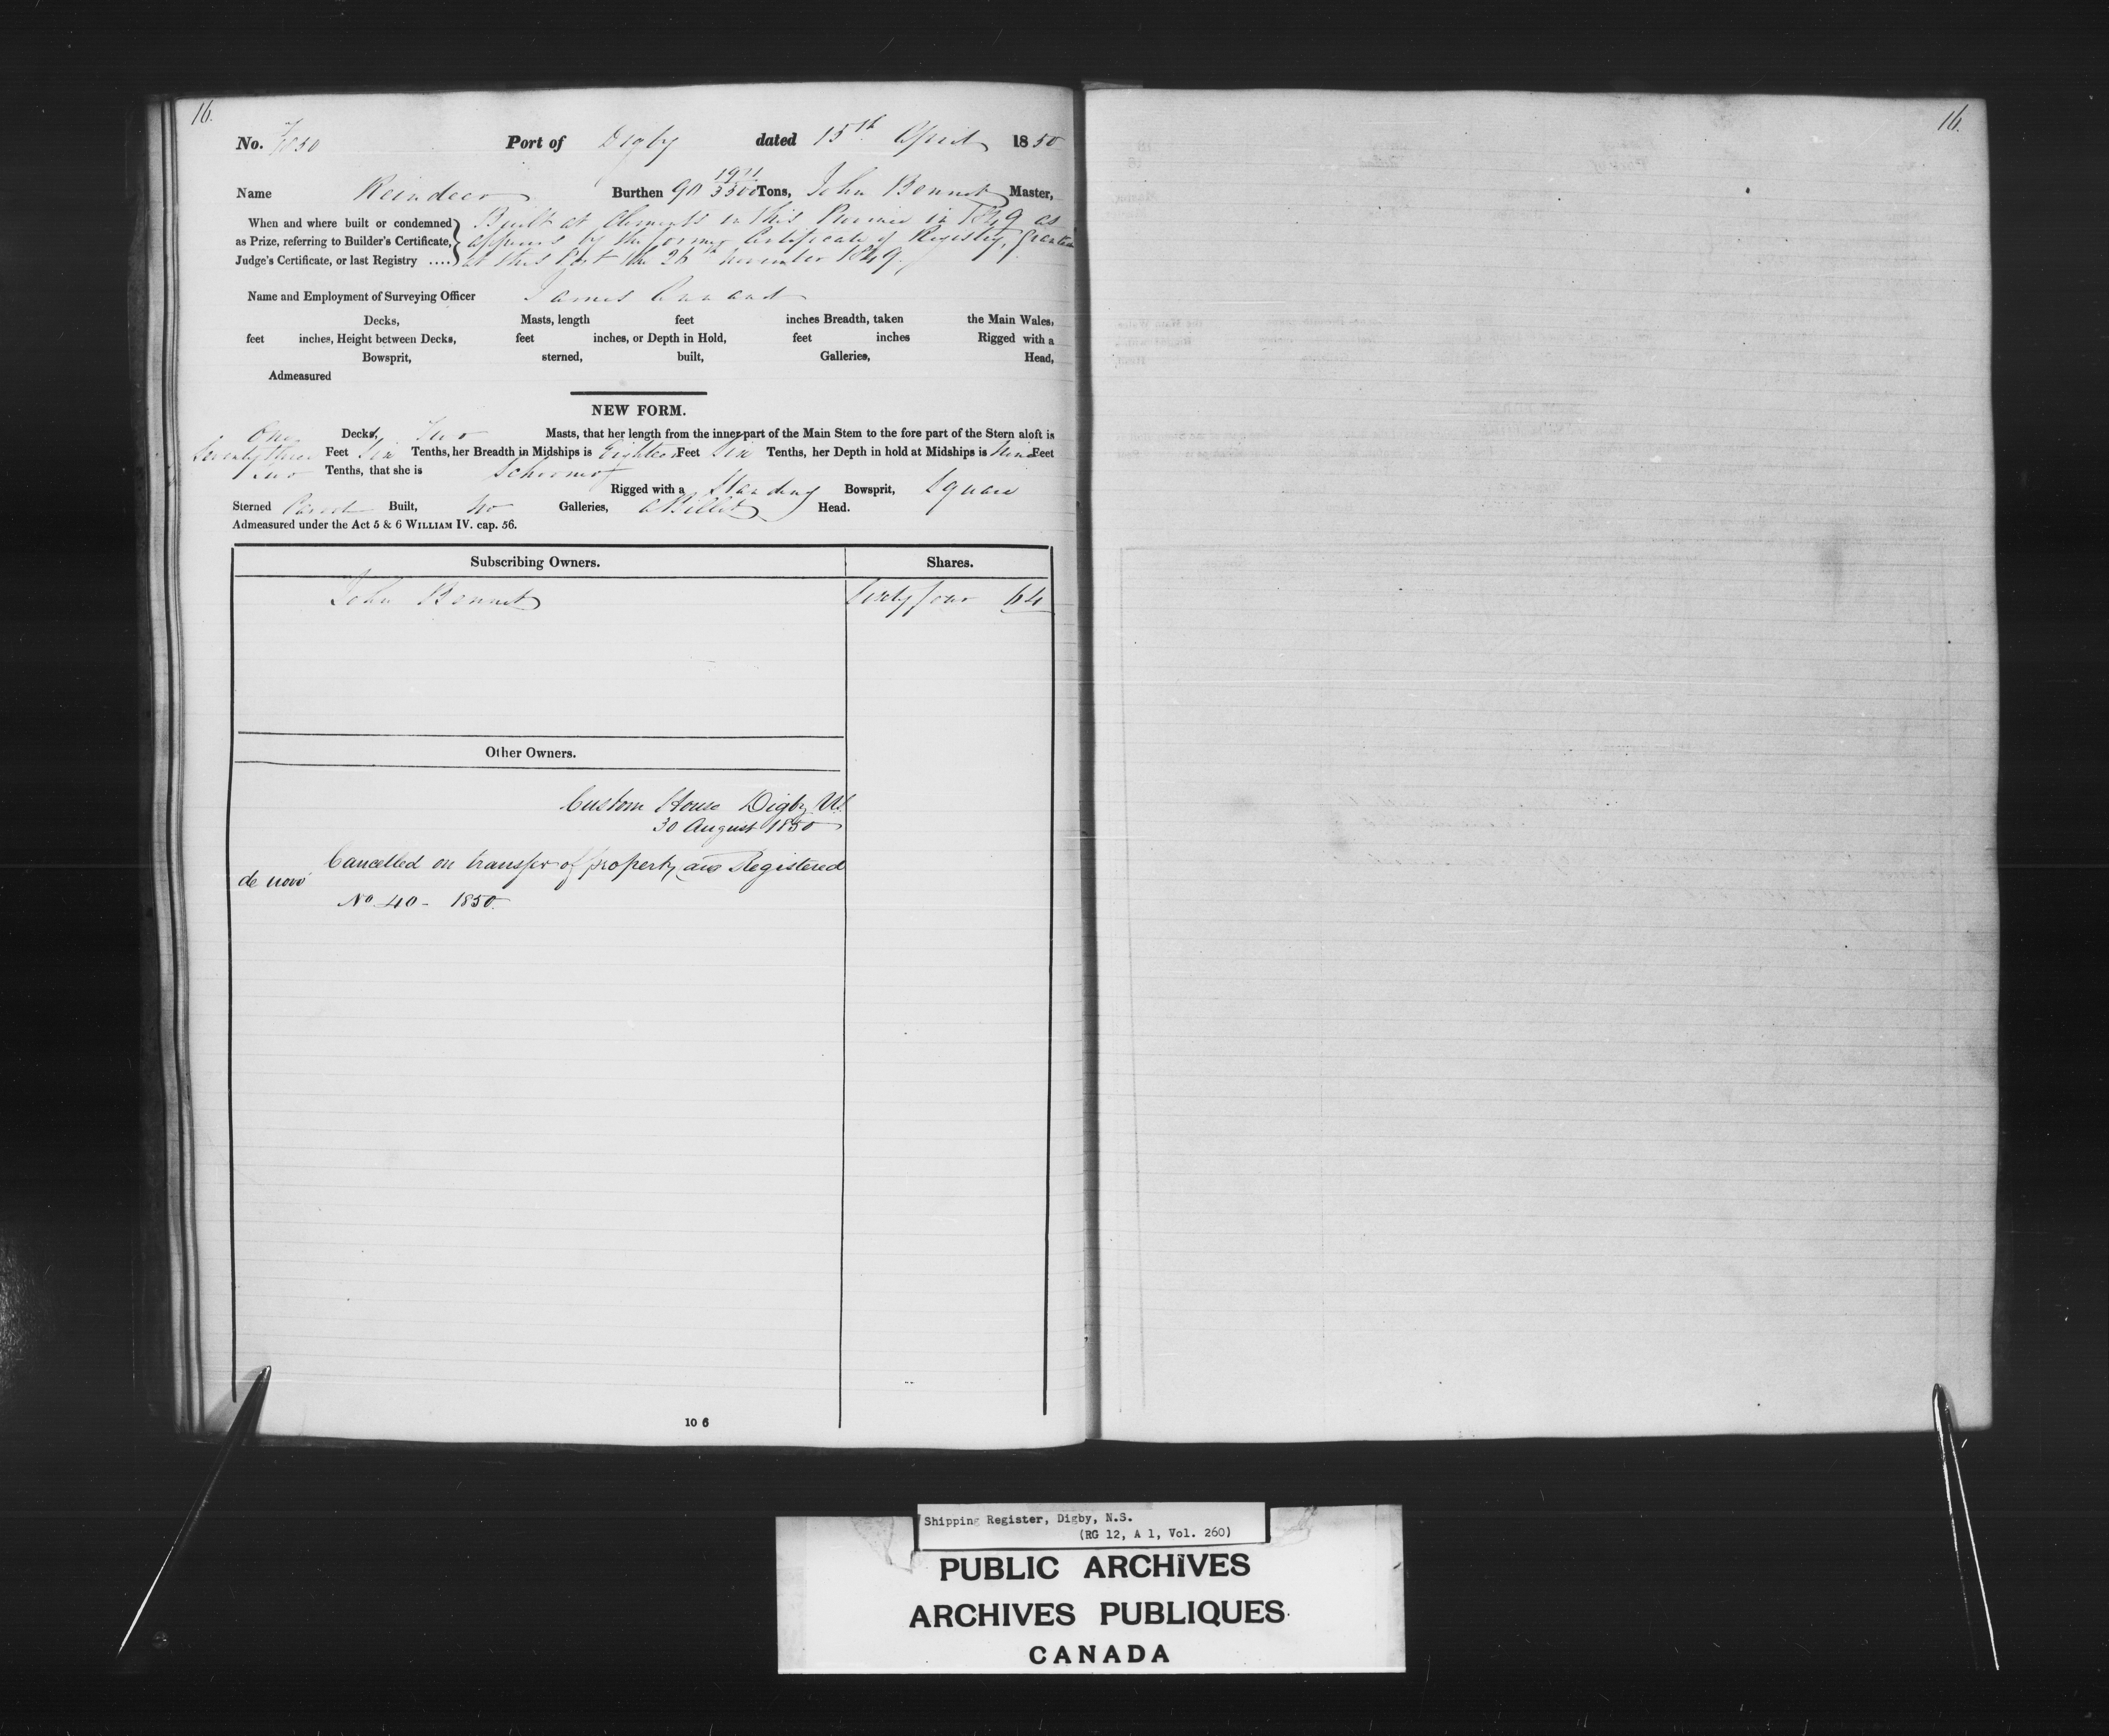 16.
No. 7/1850 Port of Digby dated 15th April 1850
Name Reindeer Burthen 90 1911/3500 Tons, John Bennet Master,
When and where built or condemned as Prize, referring to Builder's Certificate, Judge's Certificate, or last Registry ....
Built at Clements in this Province in 1849 as
appears by the former Certificate of Registry, Granted
at this Port the 26th November 1849.
Name and Employment of Surveying Officer James
Decks, Masts, length feet inches Breadth, taken the Main Wales,
feet inches, Height between Decks, feet inches, or Depth in Hold, feet inches Rigged with a
Bowsprit, sterned, built, Galleries, Head,
Admeasured
NEW FORM.
One Decks, Two Masts, that her length from the inner part of the Main Stem to the fore part of the Stern aloft is
Seventy three Feet Six Tenths, her Breadth in Midships is Eighteen Feet Six Tenths, her Depth in hold at Midships is Nine Feet
Two Tenths, that she is Schooner
Rigged with a Standing Bowsprit, Square
Sterned Carvel Built, No Galleries, a Billet Head.
Admeasured under the Act 5 & 6 WILLIAM IV. cap. 56.
Subscribing Owners. Shares.
John Bennet Sixty four 64
Other Owners.
Custom House Digby NS
30 August 1850
Cancelled on transfer of property and Registered
de novo
No 40 - 1850.
10 6
16.
Shipping Register, Digby, N.S.
(RG 12, A 1, Vol. 260)
PUBLIC ARCHIVES
ARCHIVES PUBLIQUES
CANADA